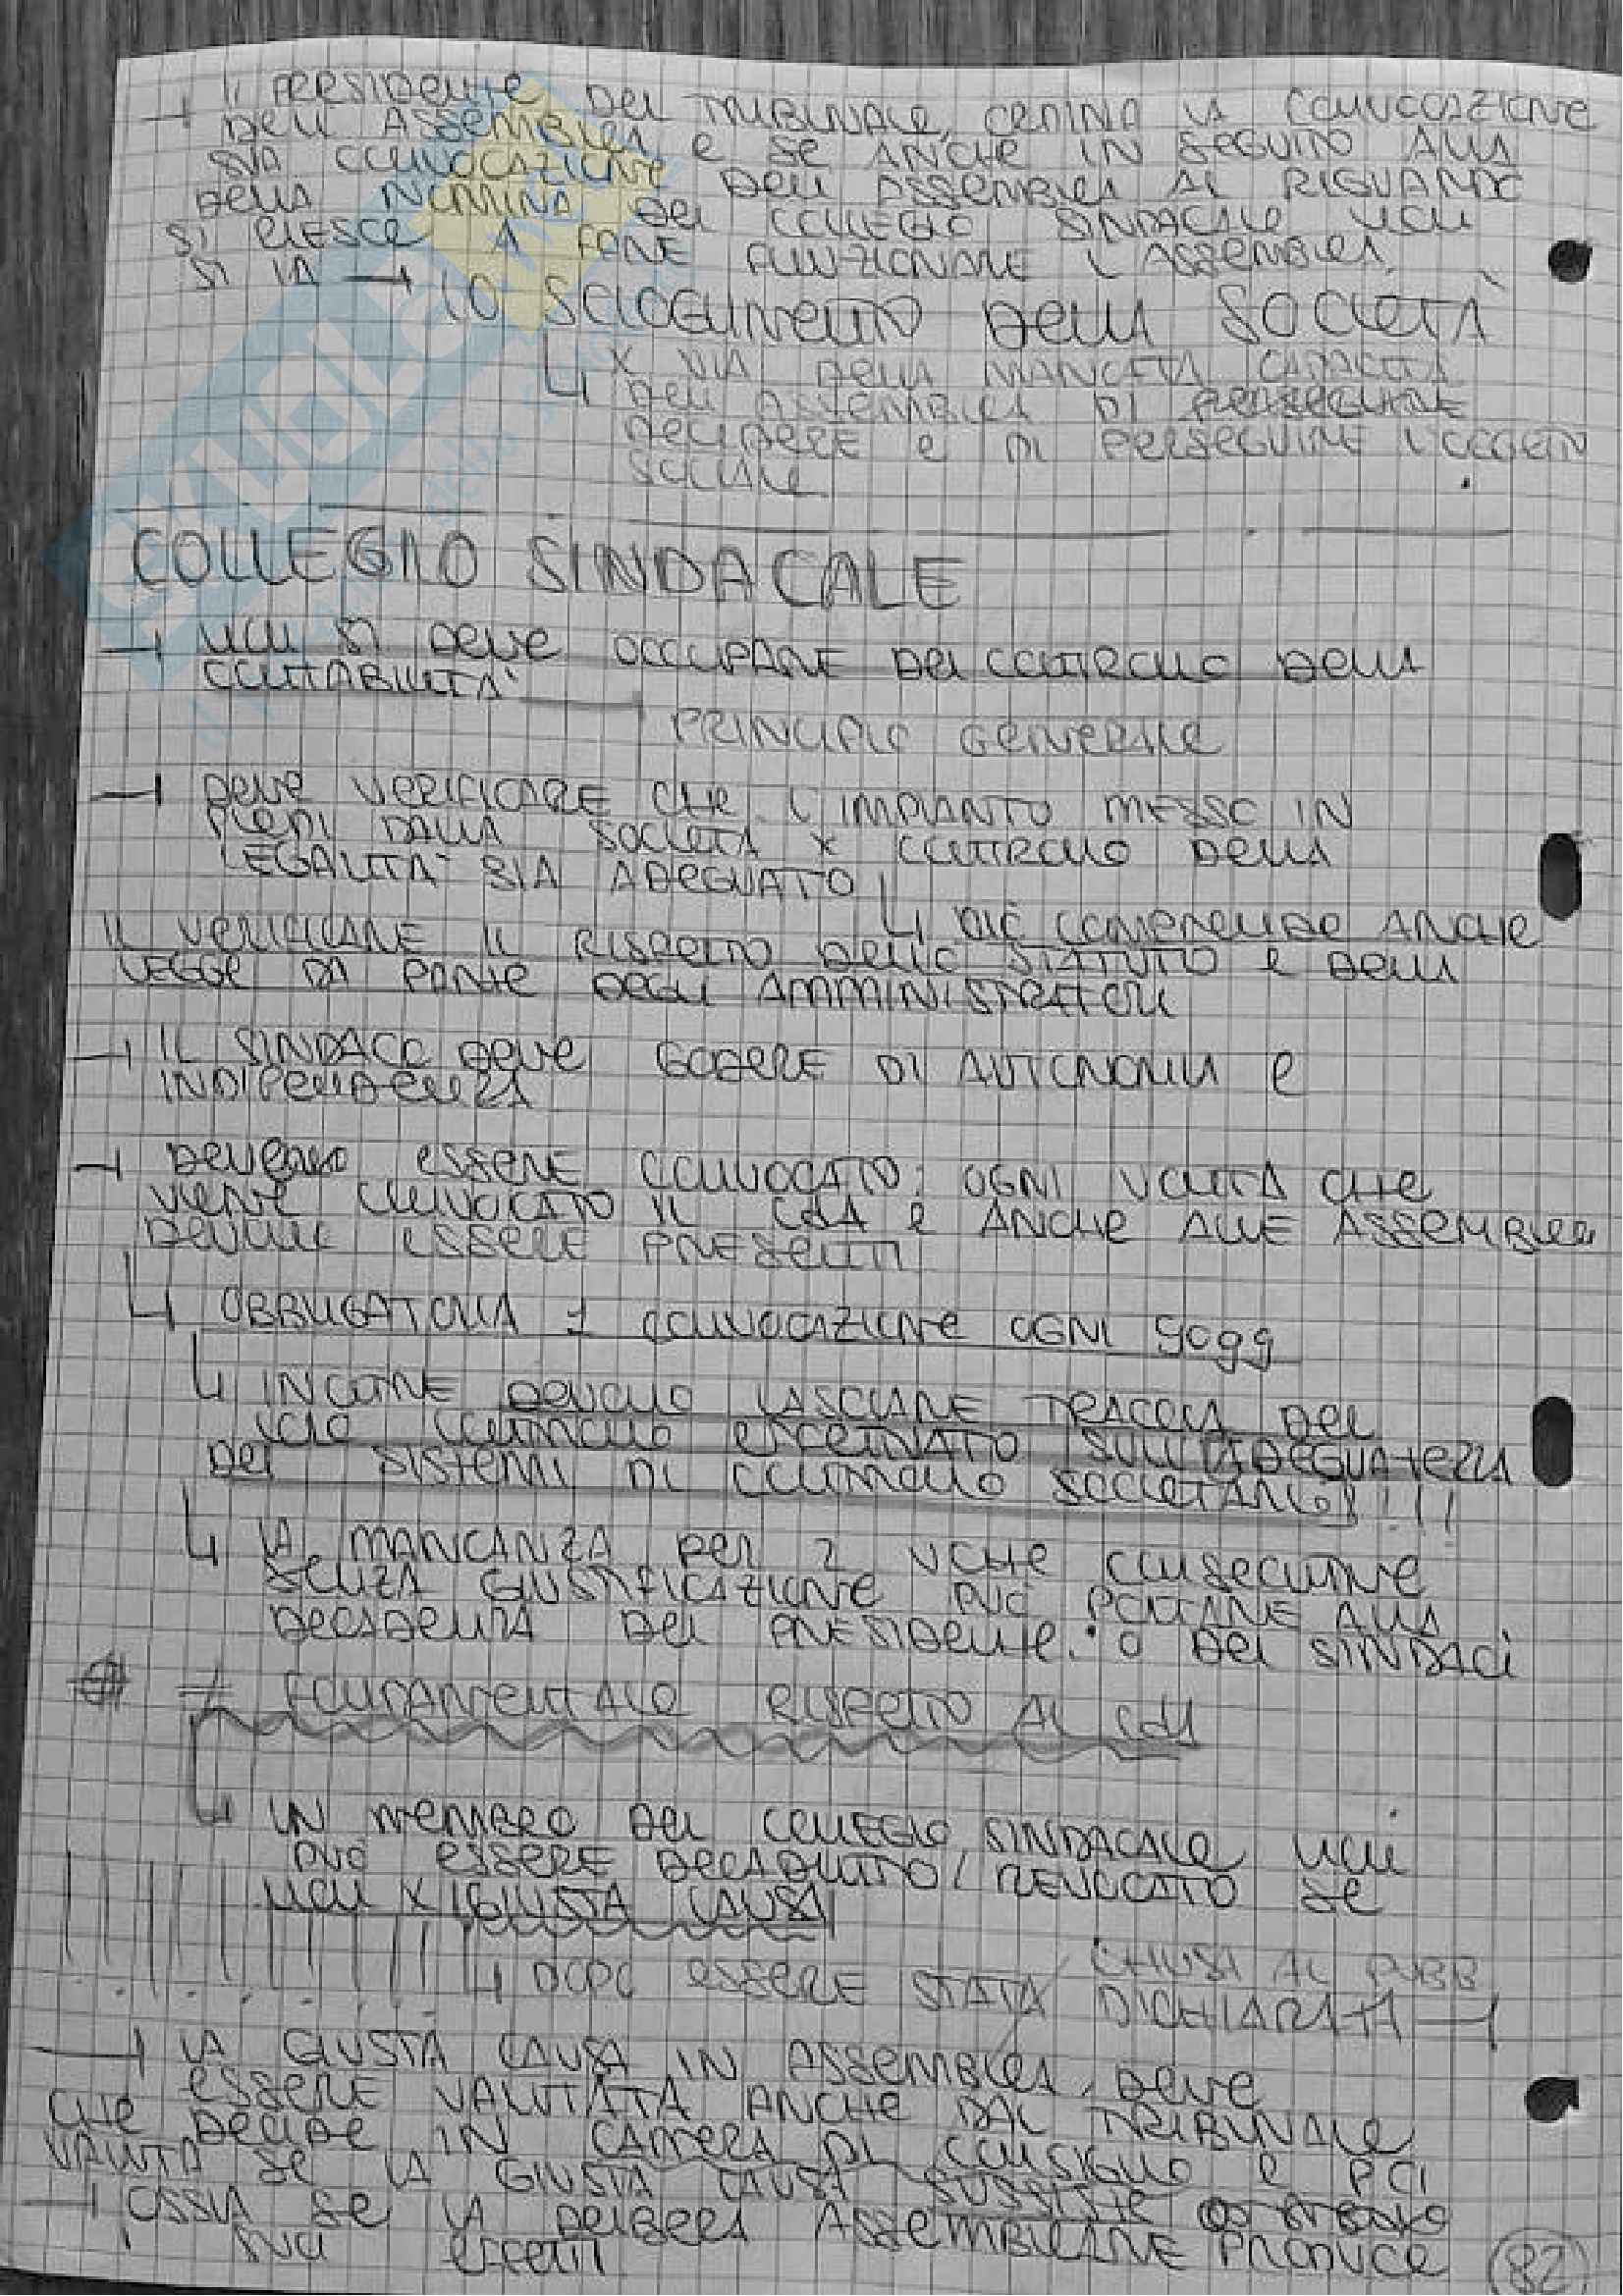 → Il PRESIDENTE DEL TRIBUNALE, ORDINA LA CONVOCAZIONE
DELL'ASSEMBLEA e SE ANCHE IN SEGUITO ALLA
SUA CONVOCAZIONE DELL'ASSEMBLEA AL RIGUARDO
DELLA NOMINA DEL COLLEGIO SINDACALE NON
SI RIESCE A FARE FUNZIONARE L'ASSEMBLEA,
SI HA → LO SCIOGLIMENTO DELLA SOCIETÀ
↳ X VIA DELLA MANCATA CAPACITÀ
DELL'ASSEMBLEA DI PERSEGUIRE
DECIDERE e DI PERSEGUIRE L'OGGETTO
SOCIALE.
COLLEGIO SINDACALE
→ NON SI DEVE OCCUPARE DEL CONTROLLO DELLA
CONTABILITÀ
PRINCIPIO GENERALE
→ DEVE VERIFICARE CHE L'IMPIANTO MESSO IN
PIEDI DALLA SOCIETÀ X CONTROLLO DELLA
LEGALITÀ SIA ADEGUATO
↳ CIÒ COMPRENDE ANCHE
IL VERIFICARE IL RISPETTO DELLO STATUTO e DELLA
LEGGE DA PARTE DEGLI AMMINISTRATORI
→ IL SINDACO DEVE GODERE DI AUTONOMIA e
INDIPENDENZA
→ DEVONO ESSERE CONVOCATO; OGNI VOLTA CHE
VIENE CONVOCATO IL CdA e ANCHE ALLE ASSEMBLEE
DEVONO ESSERE PRESENTI
↳ OBBLIGATORIA 1 CONVOCAZIONE OGNI 90gg
↳ INOLTRE DEVONO LASCIARE TRACCIA DEL
LORO CONTROLLO ESERCITATO SULL'ADEGUATEZZA
DEI SISTEMI DI CONTROLLO SOCIETARIO!!!!
↳ LA MANCANZA PER 2 VOLTE CONSECUTIVE
SENZA GIUSTIFICAZIONE PUÒ PORTARE ALLA
DECADENZA DEL PRESIDENTE. O DEI SINDACI
≠ FONDAMENTALE RISPETTO AL CdA
↳ UN MEMBRO DEL COLLEGIO SINDACALE NON
PUÒ ESSERE DECADUTO/REVOCATO SE
NON X GIUSTA CAUSA
CHIUSA AL PUBB
↳ DOPO ESSERE STATA DICHIARATA →
→ LA GIUSTA CAUSA IN ASSEMBLEA, DEVE
ESSERE VALUTATA ANCHE DAL TRIBUNALE
CHE DECIDE IN CAMERA DI CONSIGLIO e POI
VALUTA SE LA GIUSTA CAUSA SUSSISTE
→ OSSIA SE LA DELIBERA ASSEMBLEARE PRODUCE
I SUOI EFFETTI
82